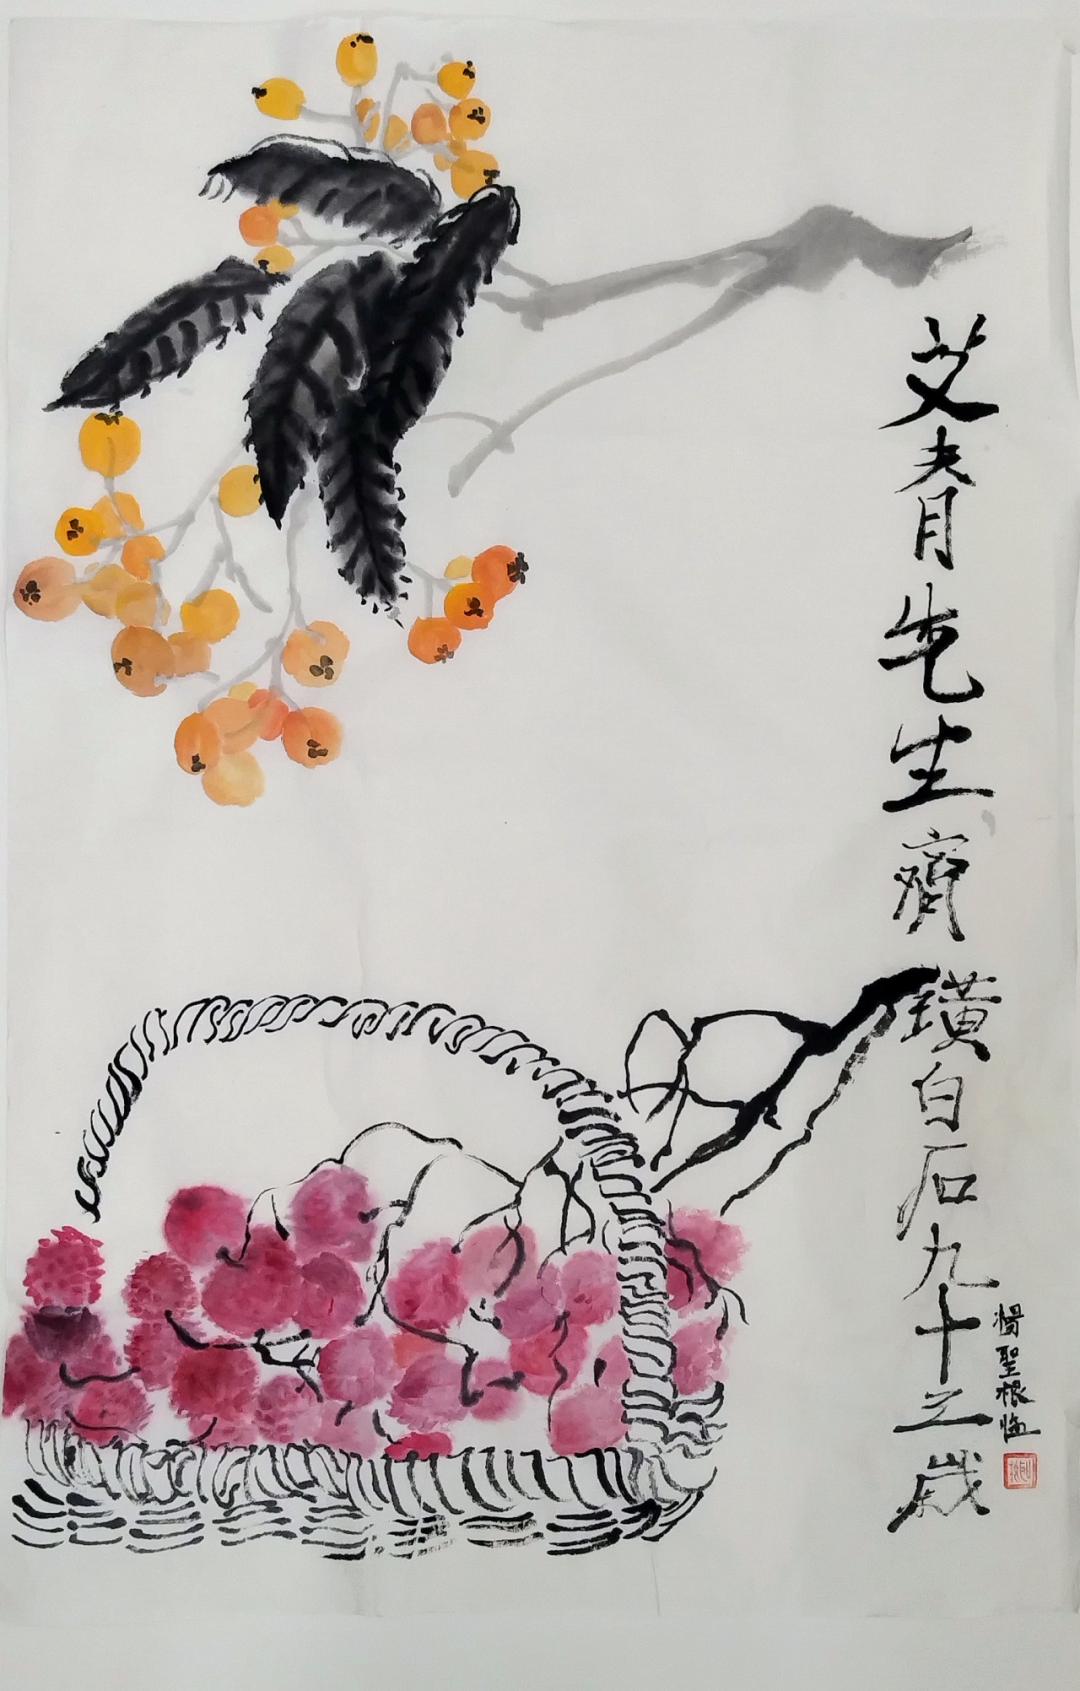 艾青先生齊璜白石九十三歲
楊聖根臨